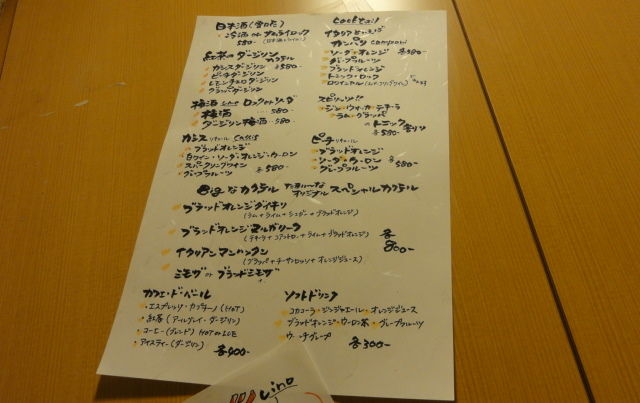 日本酒
冷酒 or
580-
紅茶のダージリン
カクテル
カシスダージリン 580-
ピーチダージリン
レモンチェロダージリン
グラッパダージリン
梅酒 ロック or ソーダ
梅酒 580-
ダージリン梅酒 580-
カシス リキュール Cassis
ブラッドオレンジ
白ワイン・ソーダ・オレンジ・ウーロン
スパークリングワイン
グレープフルーツ 各580-
Cocktail
カンパリ Campari
ソーダ・オレンジ 各580-
グレープフルーツ
ブラッドオレンジ
トニック・ロック
スピリッツ!!
ジン・ウォッカ・テキーラ
ラム・グラッパ
のトニック
各580-
ピーチ リキュール
ブラッドオレンジ
ソーダ・ウーロン 各580-
グレープフルーツ
Bigなカクテル オリジナル スペシャルカクテル
ブラッドオレンジダイキリ
(ラム+ライム+シュガー+ブラッドオレンジ)
ブラッドオレンジマルガリータ
(テキーラ+コアントロー+ライム+ブラッドオレンジ)
各800-
イタリアンマンハッタン
(グラッパ+チンザノロッソ+オレンジジュース)
ミモザ or ブラッドミモザ
カフェ・ド・バール
エスプレッソ・カプチーノ (HOT)
紅茶 (アールグレイ・ダージリン)
コーヒー (ブレンド) HOT or ICE
アイスティー (ダージリン)
各400-
ソフトドリンク
コカコーラ・ジンジャエール・オレンジジュース
ブラッドオレンジ・ウーロン茶・グレープフルーツ
各300-
vino